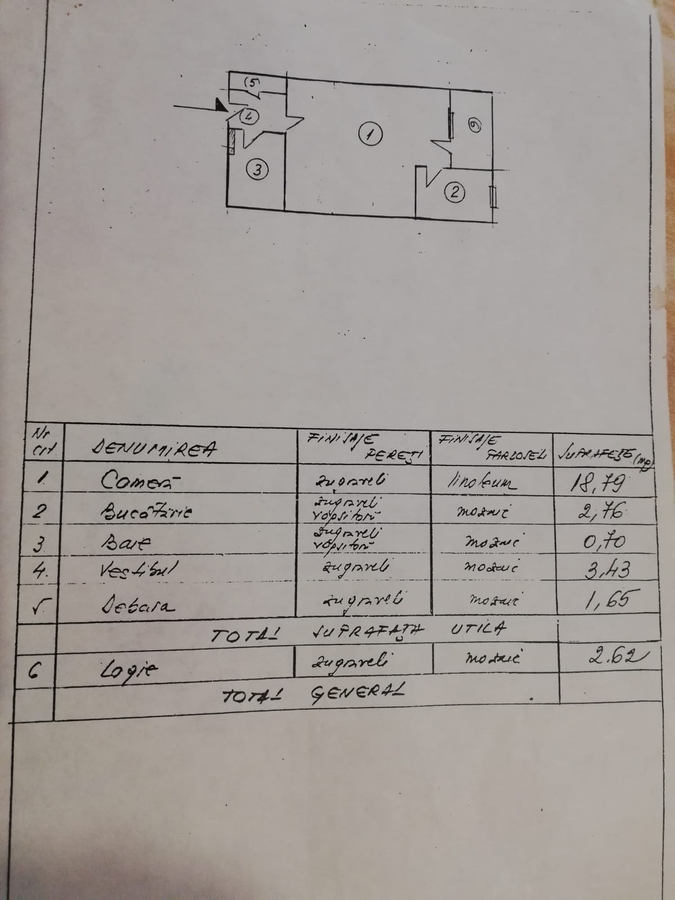 5
4
1
6
3
2
Nr crt DENUMIREA FINISAJE PEREȚI FINISAJE PARDOSELI SUPRAFEȚE (mp)
1. Cameră zugraveli linoleum 18,79
2 Bucătărie zugraveli vopsitorii mozaic 2,76
3 Baie zugraveli vopsitorii mozaic 0,70
4. Vestibul zugraveli mozaic 3,43
5. Debara zugraveli mozaic 1,65
TOTAL SUPRAFAȚA UTILA
6 Logie zugraveli mozaic 2.62
TOTAL GENERAL